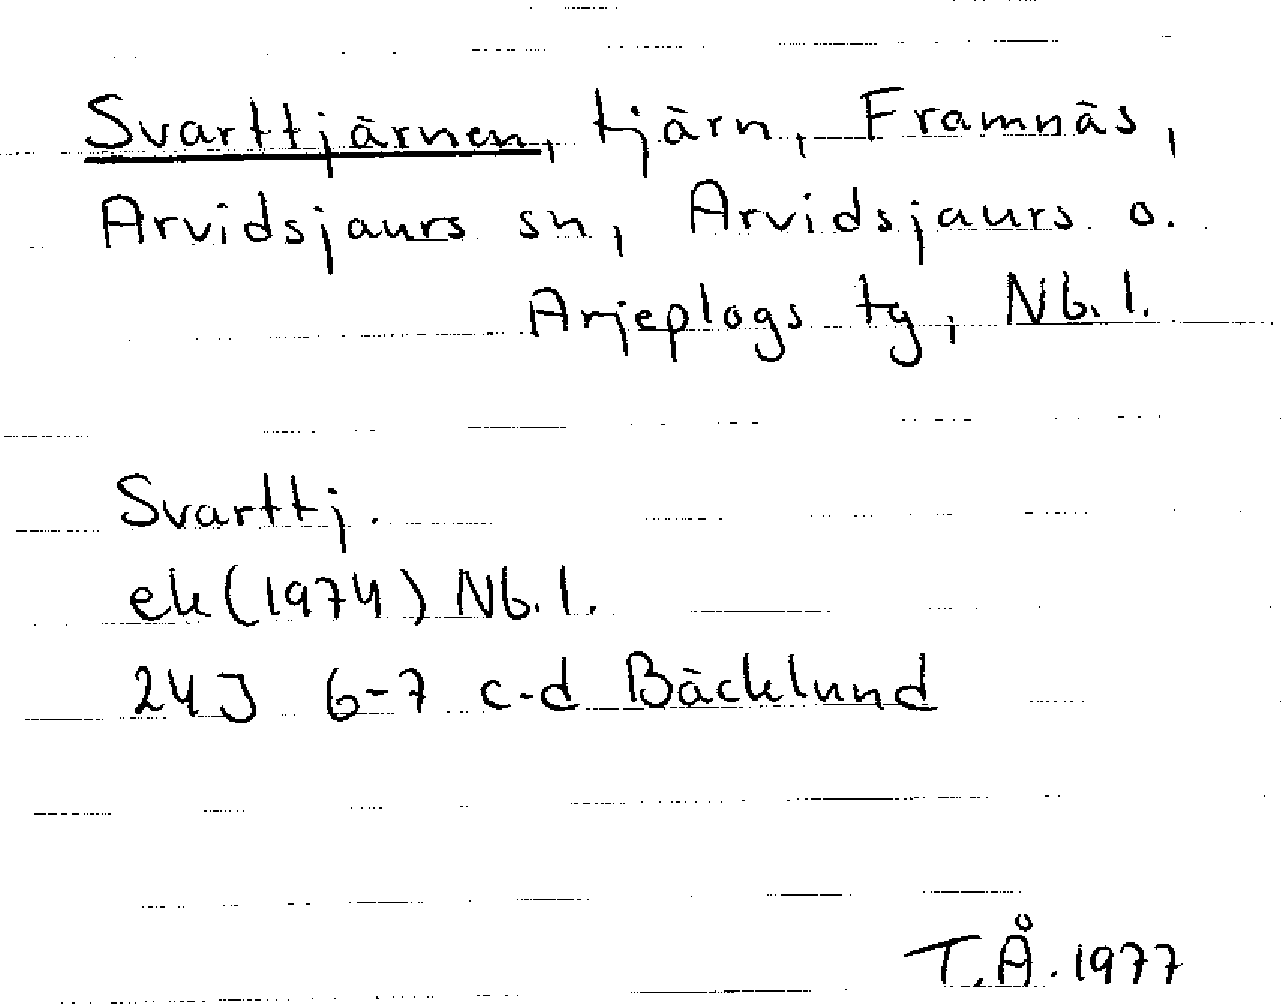 Svarttjärnen, tjärn, Framnäs,
Arvidsjaurs sn, Arvidsjaurs o.
Arjeplogs tg, Nb.l.
Svarttj.
ek (1974) Nb.l.
24J 6-7 c-d Bäcklund
T.Å. 1977